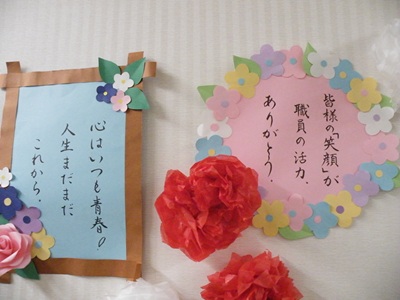 心はいつも青春!
人生まだまだ
これから.
皆様の「笑顔」が
職員の活力.
ありがとう.